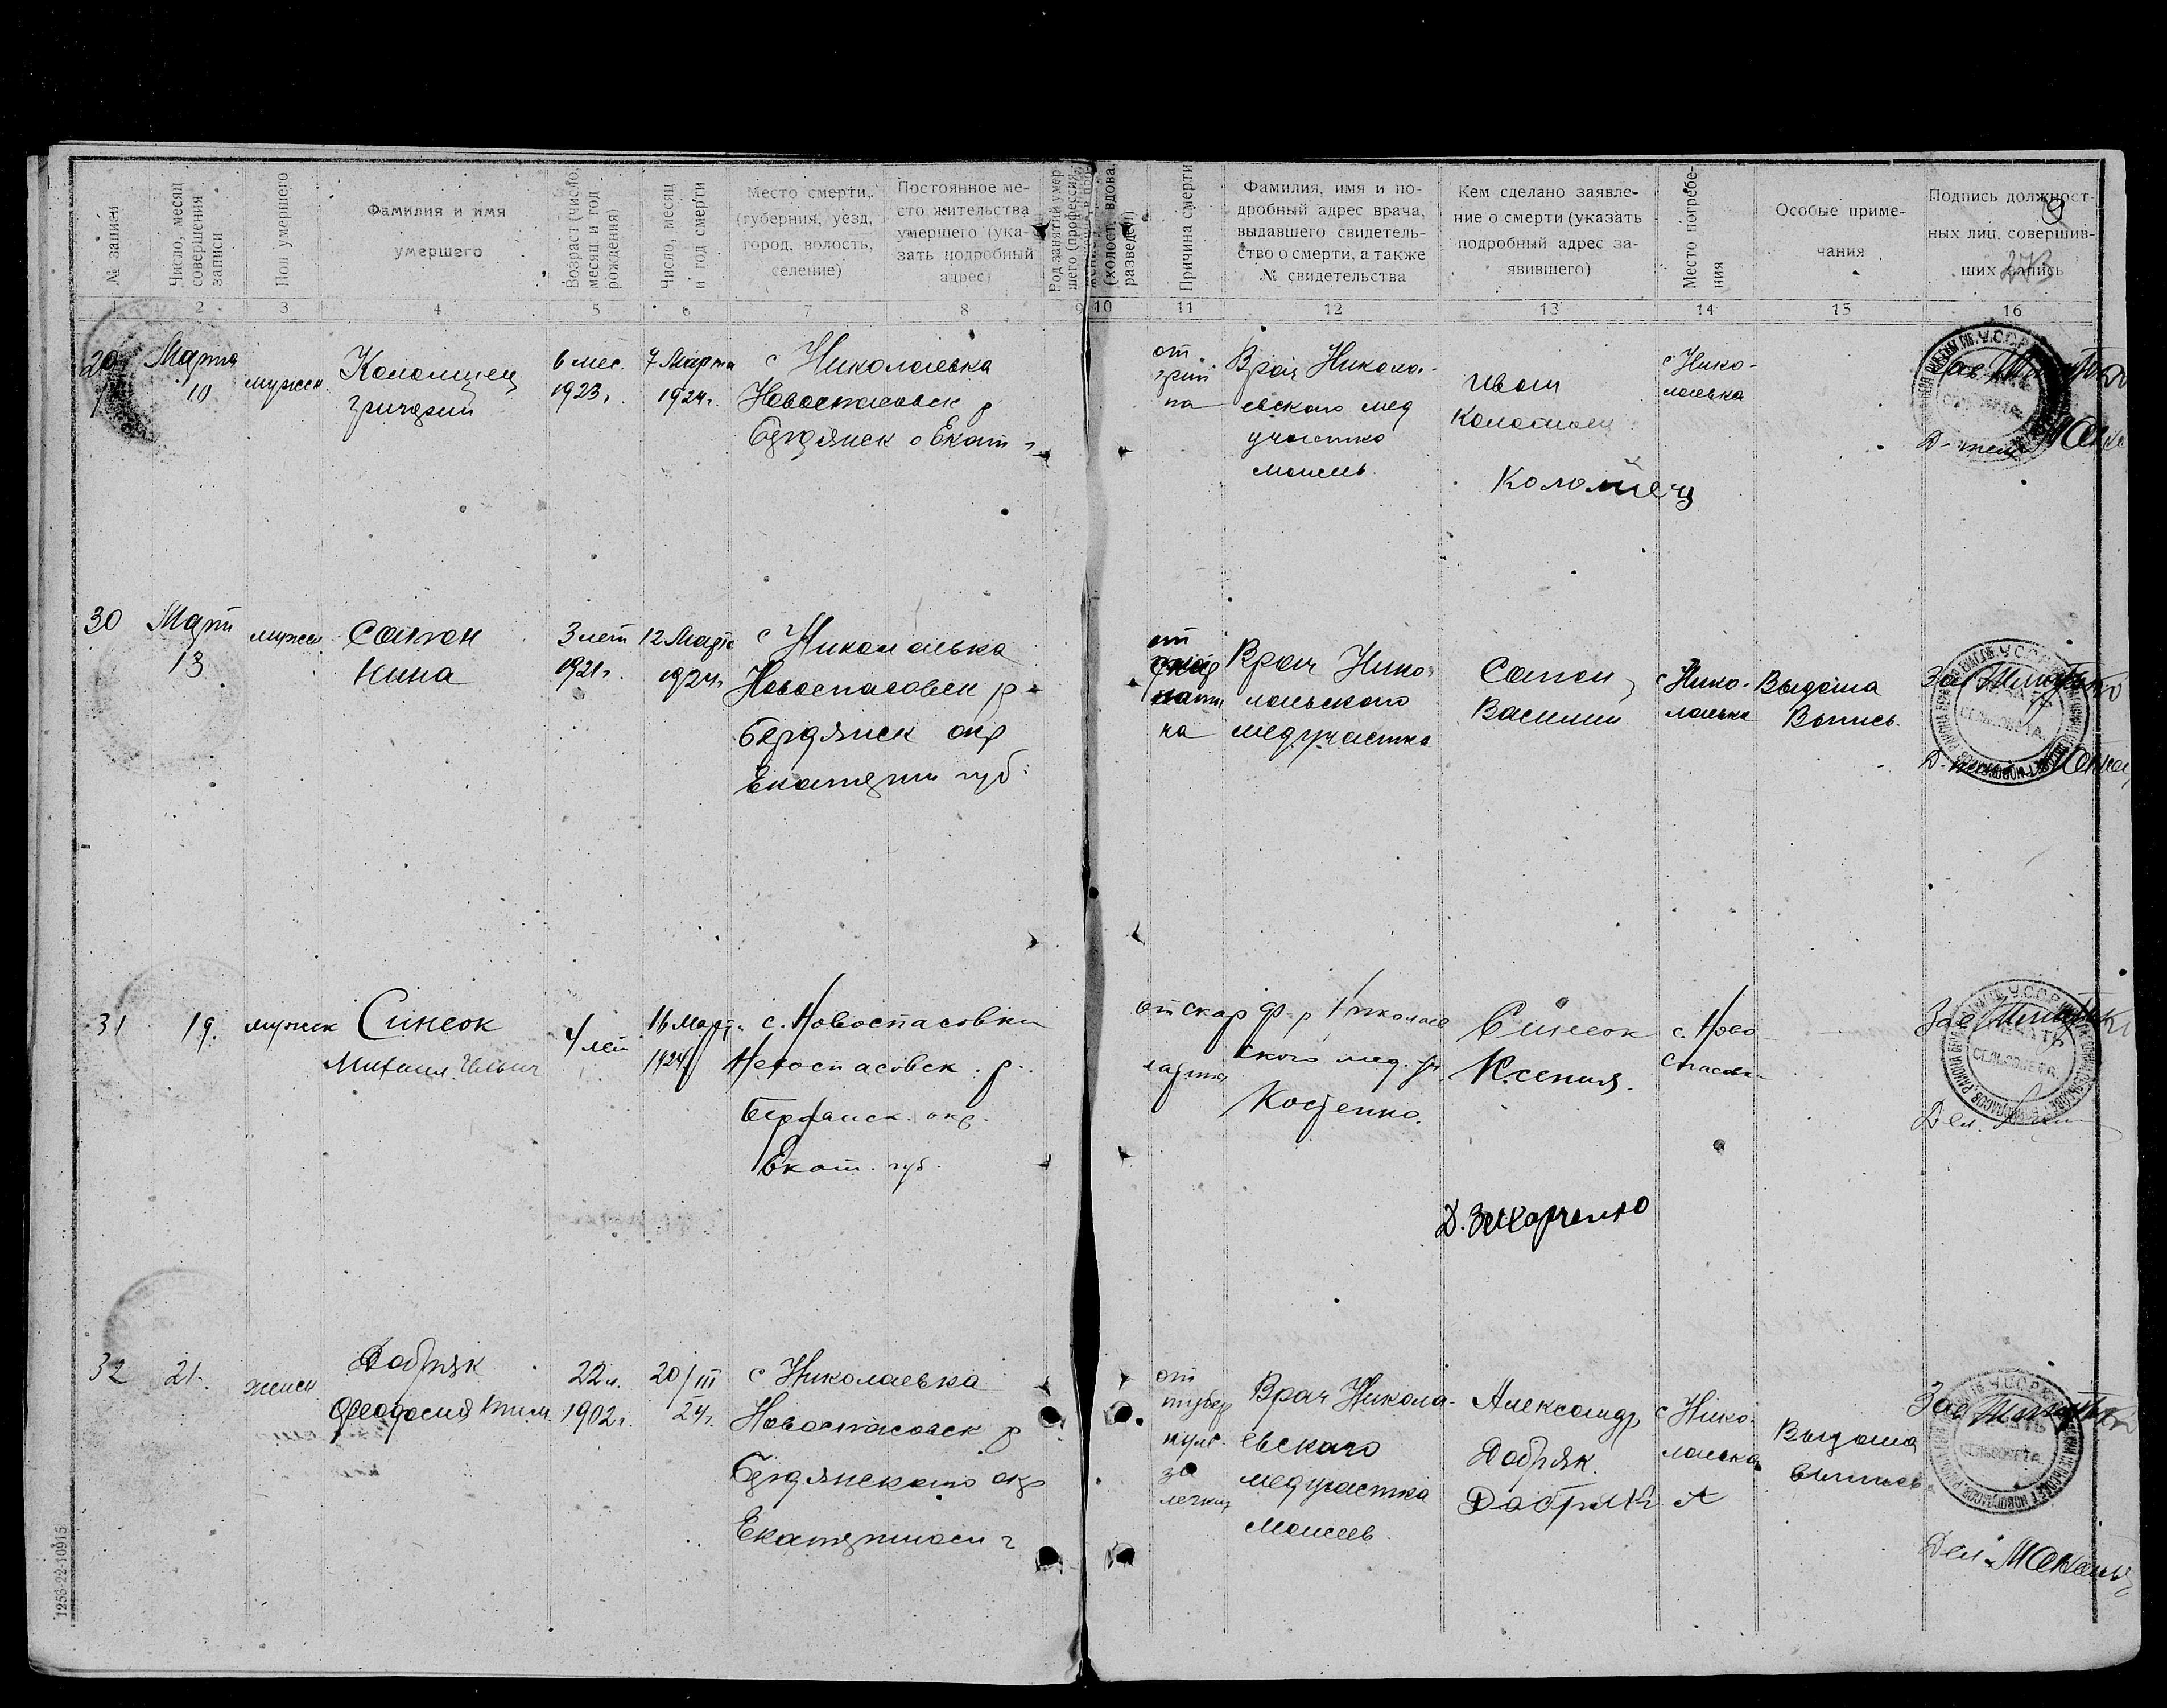 № записи
Число, месяц
совершения
записи
Пол умершего
Фамилия и имя
умершего
Возраст (число,
месяц и год
рождения)
Число, месяц
и год смерти
Место смерти,
(губерния, уезд,
город, волость,
селение)
Постоянное ме-
сто жительства
умершего (ука-
зать подробный
адрес)
Род занятий умер-
шего (профессия,
(холост, вдова,
разведен)
Причина смерти
Фамилия, имя и по-
дробный адрес врача,
выдавшего свидетель-
ство о смерти, а также
№ свидетельства
Кем сделано заявле-
ние о смерти (указать
подробный адрес за-
явившего)
Место погребе-
ния
Особые приме-
чания
Подпись должност-
ных лиц, совершив-
ших запись
9
273
1 2 3 4 5 6 7 8 9 10 11 12 13 14 15 16
Марта
10
мужск
Коломиец
Григорий
6 мес.
1923 г.
7 Марта
1924 г.
с Николаевка
Новоспасовск р
Бердянск о Екат г
от
грип
па
Врач Никола-
евского мед
участка
Иван
Коломиец
Коломіец
с Нико-
лаевка
30
Март
13
мужск
Сапон
Нина
3 лет
1921 г.
12 Марта
1924 г.
с Николаевка
Новоспасовск р
Бердянск окр
Екатерин губ.
от
скар
латин
на
Врач Нико-
лаевского
медучастка
Сапон
Василий
с Нико-
лаевка
Выдана
Выпись
31
19.
мужск
Синеок
Михаил Ильич
4 лет
16 Март.
1924
с. Новоспасовки
Новоспасовск. р.
Бердянск. окр.
Екат. губ.
от скар
латин
ского мед. уч
Костенко.
Синеок
Ксения.
с. Ново
спасовки
Д. Захарченко
32
21.
женск
Добряк
Феодосия
22 л.
1902 г.
20/III
24 г.
с Николаевка
Новоспасовск р
Бердянского окр
Екатеринос г
от
тубер
кул.
за
легких
Врач Никола-
евского
медучастка
Моисеев
Александр
Добряк.
Добряк А
с Нико-
лаевка
Выдана
выпись
1253-22-10915